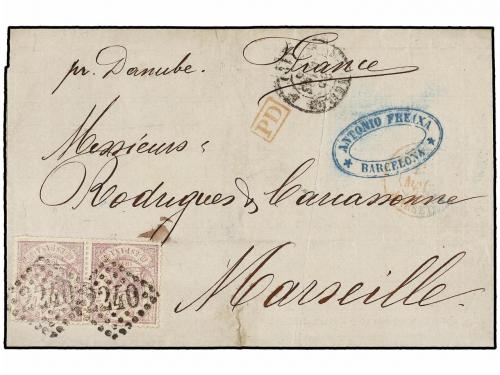 pr. Danube.
France
PD
ANTONIO FREIXA
BARCELONA
Messieurs
Rodrigues & Carcassonne
Marseille.
2240 2240